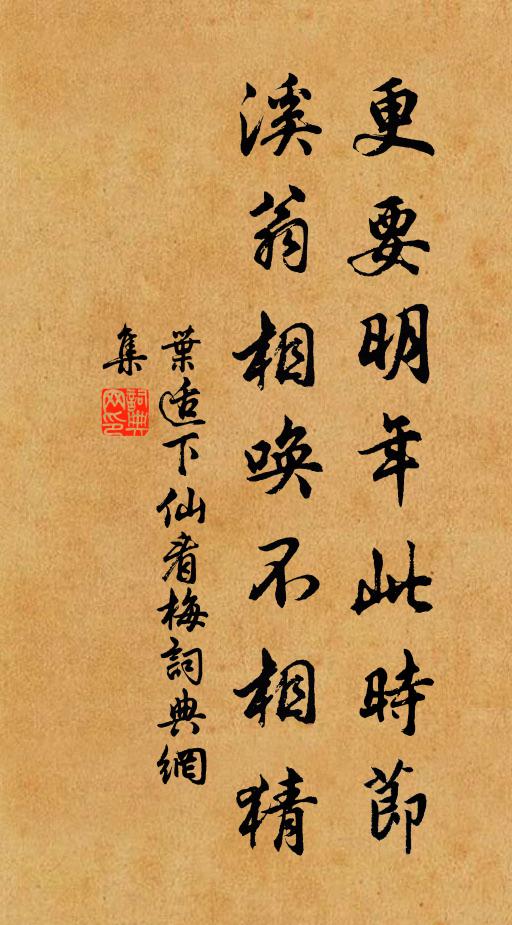 更要明年此時節
溪翁相喚不相猜
葉适下仙看梅詞典網
集
詞典
网印